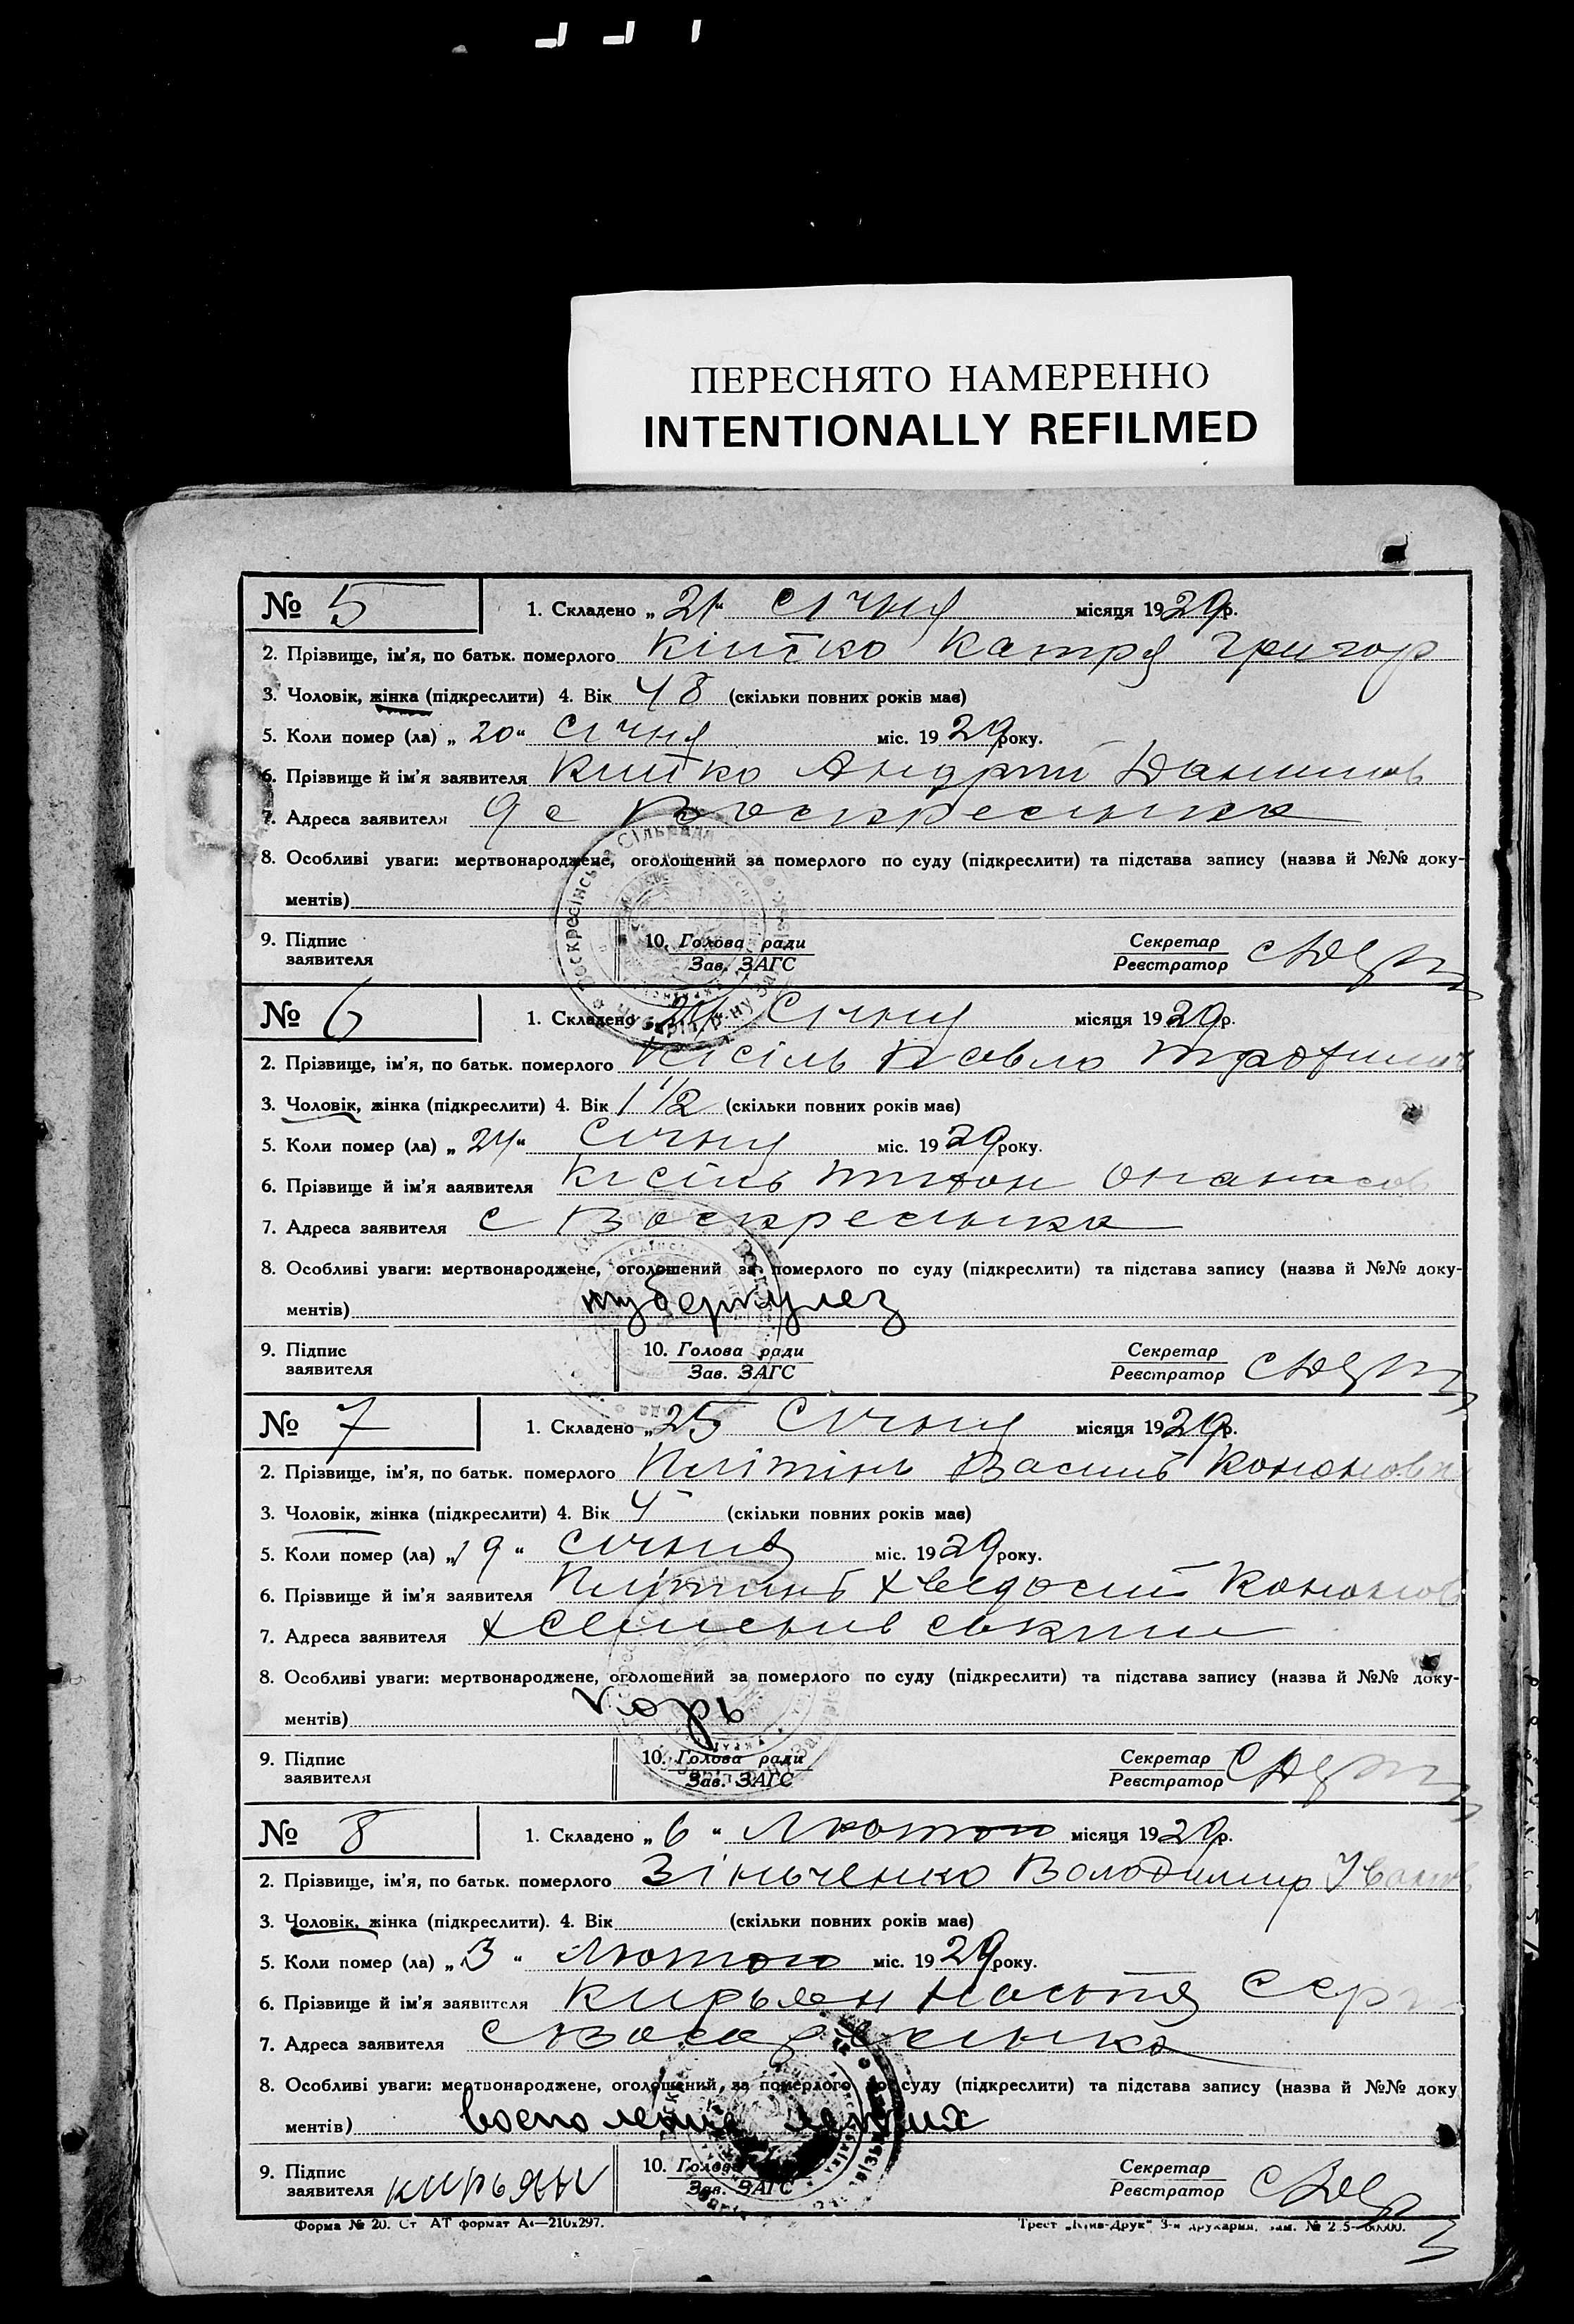 ПЕРЕСНЯТО НАМЕРЕННО
INTENTIONALLY REFILMED
№ 5 1. Складено „21“ січня місяця 1929р.
2. Прізвище, ім'я, по батьк. померлого Кійко Катря Григор
3. Чоловік, жінка (підкреслити) 4. Вік 48 (скільки повних років має)
5. Коли помер (ла) „20“ січня міс. 1929 року.
6. Прізвище й ім'я заявителя Кийко Андрій Данилов
7. Адреса заявителя с Воскресенка
8. Особливі уваги: мертвонароджене, оголошений за померлого по суду (підкреслити) та підстава запису (назва й №№ доку-
ментів)
9. Підпис заявителя 10. Голова ради Зав. ЗАГС Секретар Реєстратор
№ 6 1. Складено „24“ Січня місяця 1929р.
2. Прізвище, ім'я, по батьк. померлого Кісіль Павло
3. Чоловік, жінка (підкреслити) 4. Вік 1 1/2 (скільки повних років має)
5. Коли помер (ла) „24“ Січня міс. 1929 року.
6. Прізвище й ім'я заявителя Кісіль Опанасов
7. Адреса заявителя с Воскресенка
8. Особливі уваги: мертвонароджене, оголошений за померлого по суду (підкреслити) та підстава запису (назва й №№ доку-
ментів) туберкулез
9. Підпис заявителя 10. Голова ради Зав. ЗАГС Секретар Реєстратор
№ 7 1. Складено „25 Січня місяця 1929р.
2. Прізвище, ім'я, по батьк. померлого Василь Кононов
3. Чоловік, жінка (підкреслити) 4. Вік 4 (скільки повних років має)
5. Коли помер (ла) „19“ січня міс. 1929 року.
6. Прізвище й ім'я заявителя Хведосій Кононов
7. Адреса заявителя х
8. Особливі уваги: мертвонароджене, оголошений за померлого по суду (підкреслити) та підстава запису (назва й №№ доку-
ментів) корь
9. Підпис заявителя 10. Голова ради Зав. ЗАГС Секретар Реєстратор
№ 8 1. Складено „6“ Лютого місяця 1929р.
2. Прізвище, ім'я, по батьк. померлого Зінченко Володимир Іванов
3. Чоловік, жінка (підкреслити). 4. Вік (скільки повних років має)
5. Коли помер (ла) „3“ Лютого міс. 1929 року.
6. Прізвище й ім'я заявителя Кирьян Настя Сер
7. Адреса заявителя с Воскресенка
8. Особливі уваги: мертвонароджене, оголошений за померлого по суду (підкреслити) та підстава запису (назва й №№ доку
ментів) легких
9. Підпис заявителя кирьян 10. Голова ради Зав. ЗАГС Секретар Реєстратор
Форма № 20. Ст АТ формат А₄—210х297.